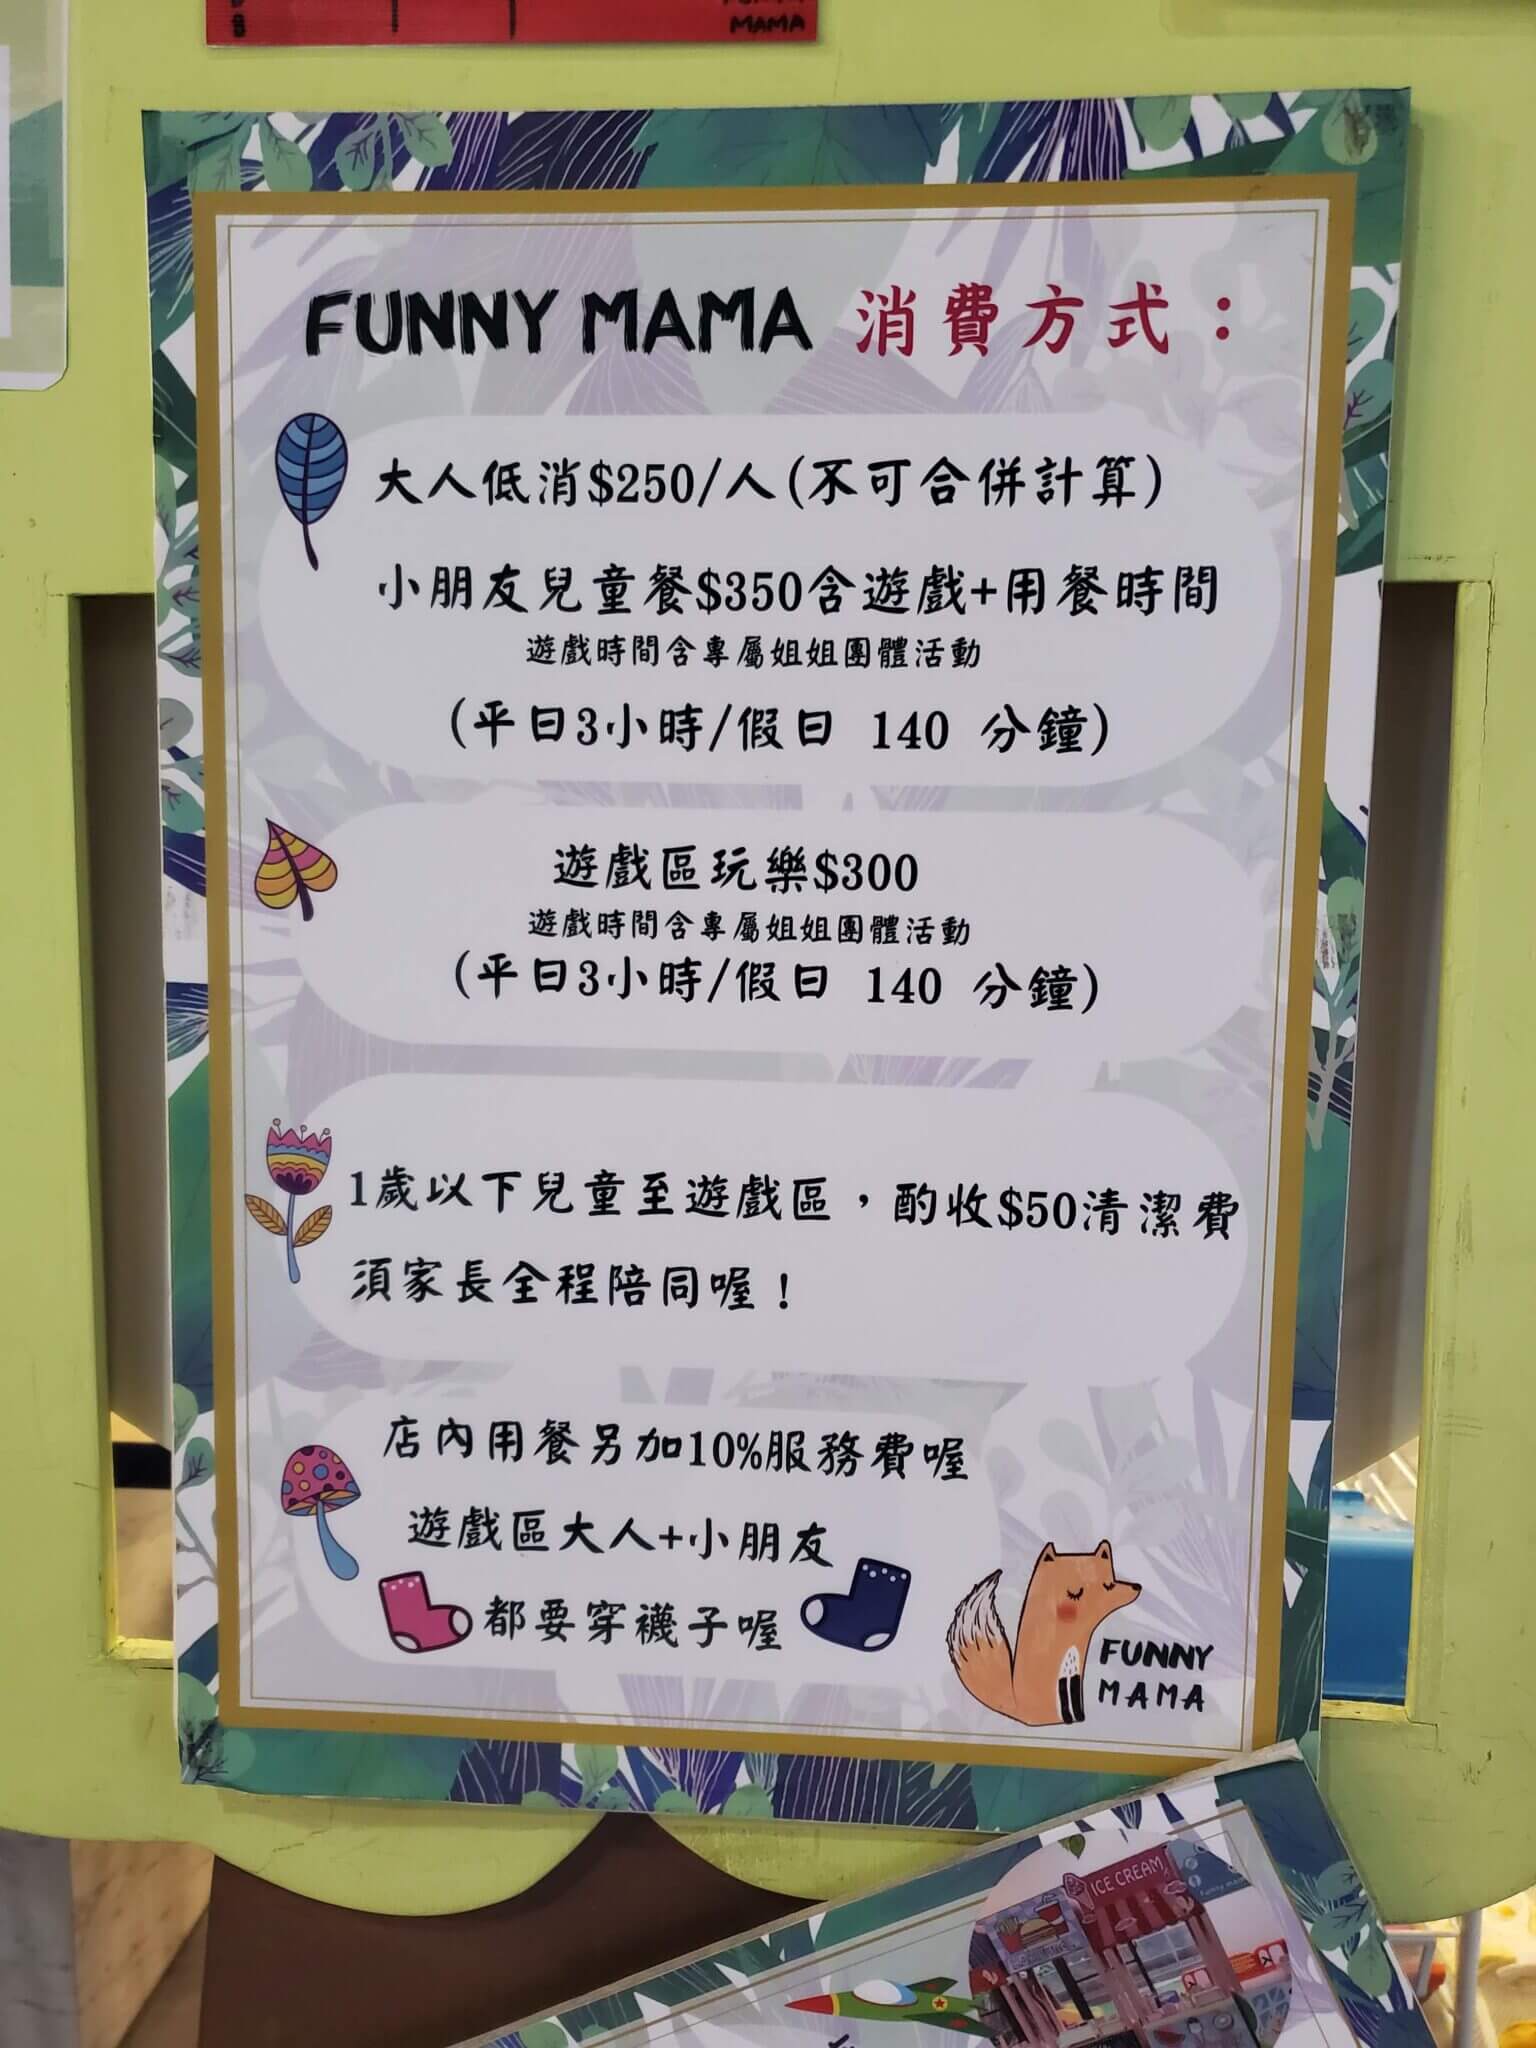 MAMA
FUNNY MAMA 消費方式：
大人低消$250/人(不可合併計算)
小朋友兒童餐$350含遊戲+用餐時間
遊戲時間含專屬姐姐團體活動
(平日3小時/假日 140 分鐘)
遊戲區玩樂$300
遊戲時間含專屬姐姐團體活動
(平日3小時/假日 140 分鐘)
1歲以下兒童至遊戲區，酌收$50清潔費
須家長全程陪同喔！
店內用餐另加10%服務費喔
遊戲區大人+小朋友
都要穿襪子喔
FUNNY
MAMA
ICE CREAM